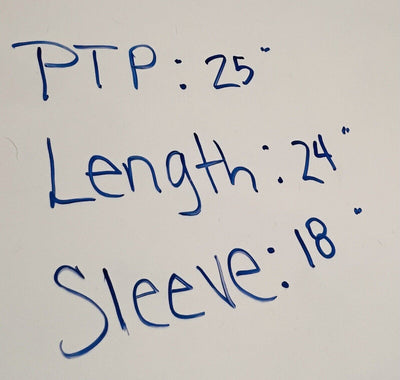 PTP: 25"
Length: 24"
Sleeve: 18"